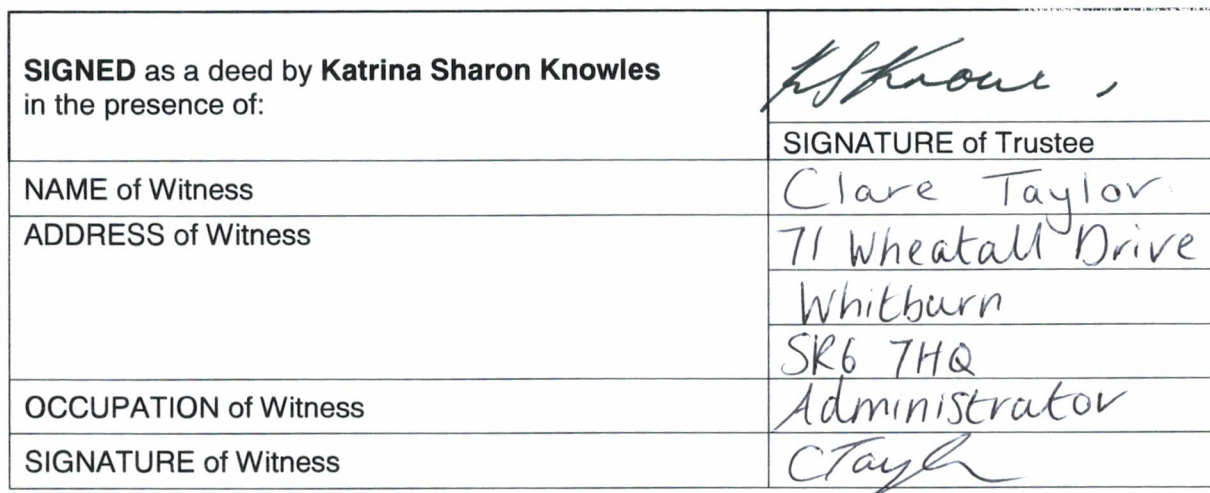 SIGNED as a deed by Katrina Sharon Knowles
in the presence of:
SIGNATURE of Trustee
NAME of Witness
Clare Taylor
ADDRESS of Witness
71 Wheatall Drive
Whitburn
SR6 7HQ
OCCUPATION of Witness
Administrator
SIGNATURE of Witness